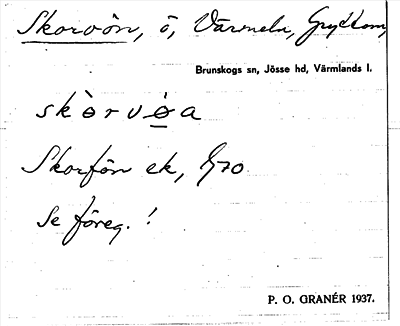 Skorvön, ö, Värmeln,
Brunskogs sn, Jösse hd, Värmlands l.
skòrvö̀a
Skorfön ek, G70
Se föreg. !
P. O. GRANÉR 1937.